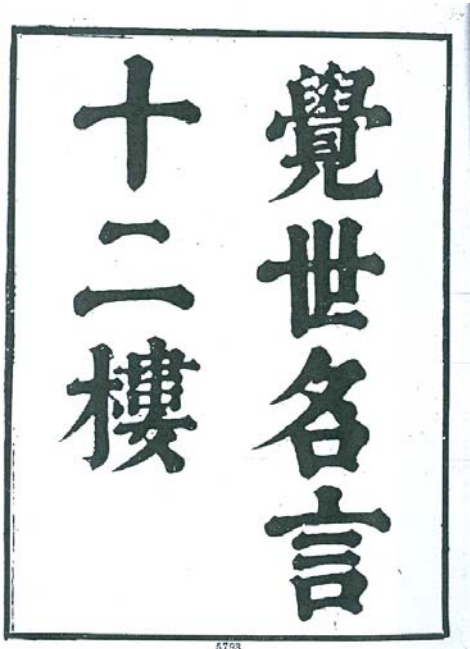 覺世名言
十二樓
5793